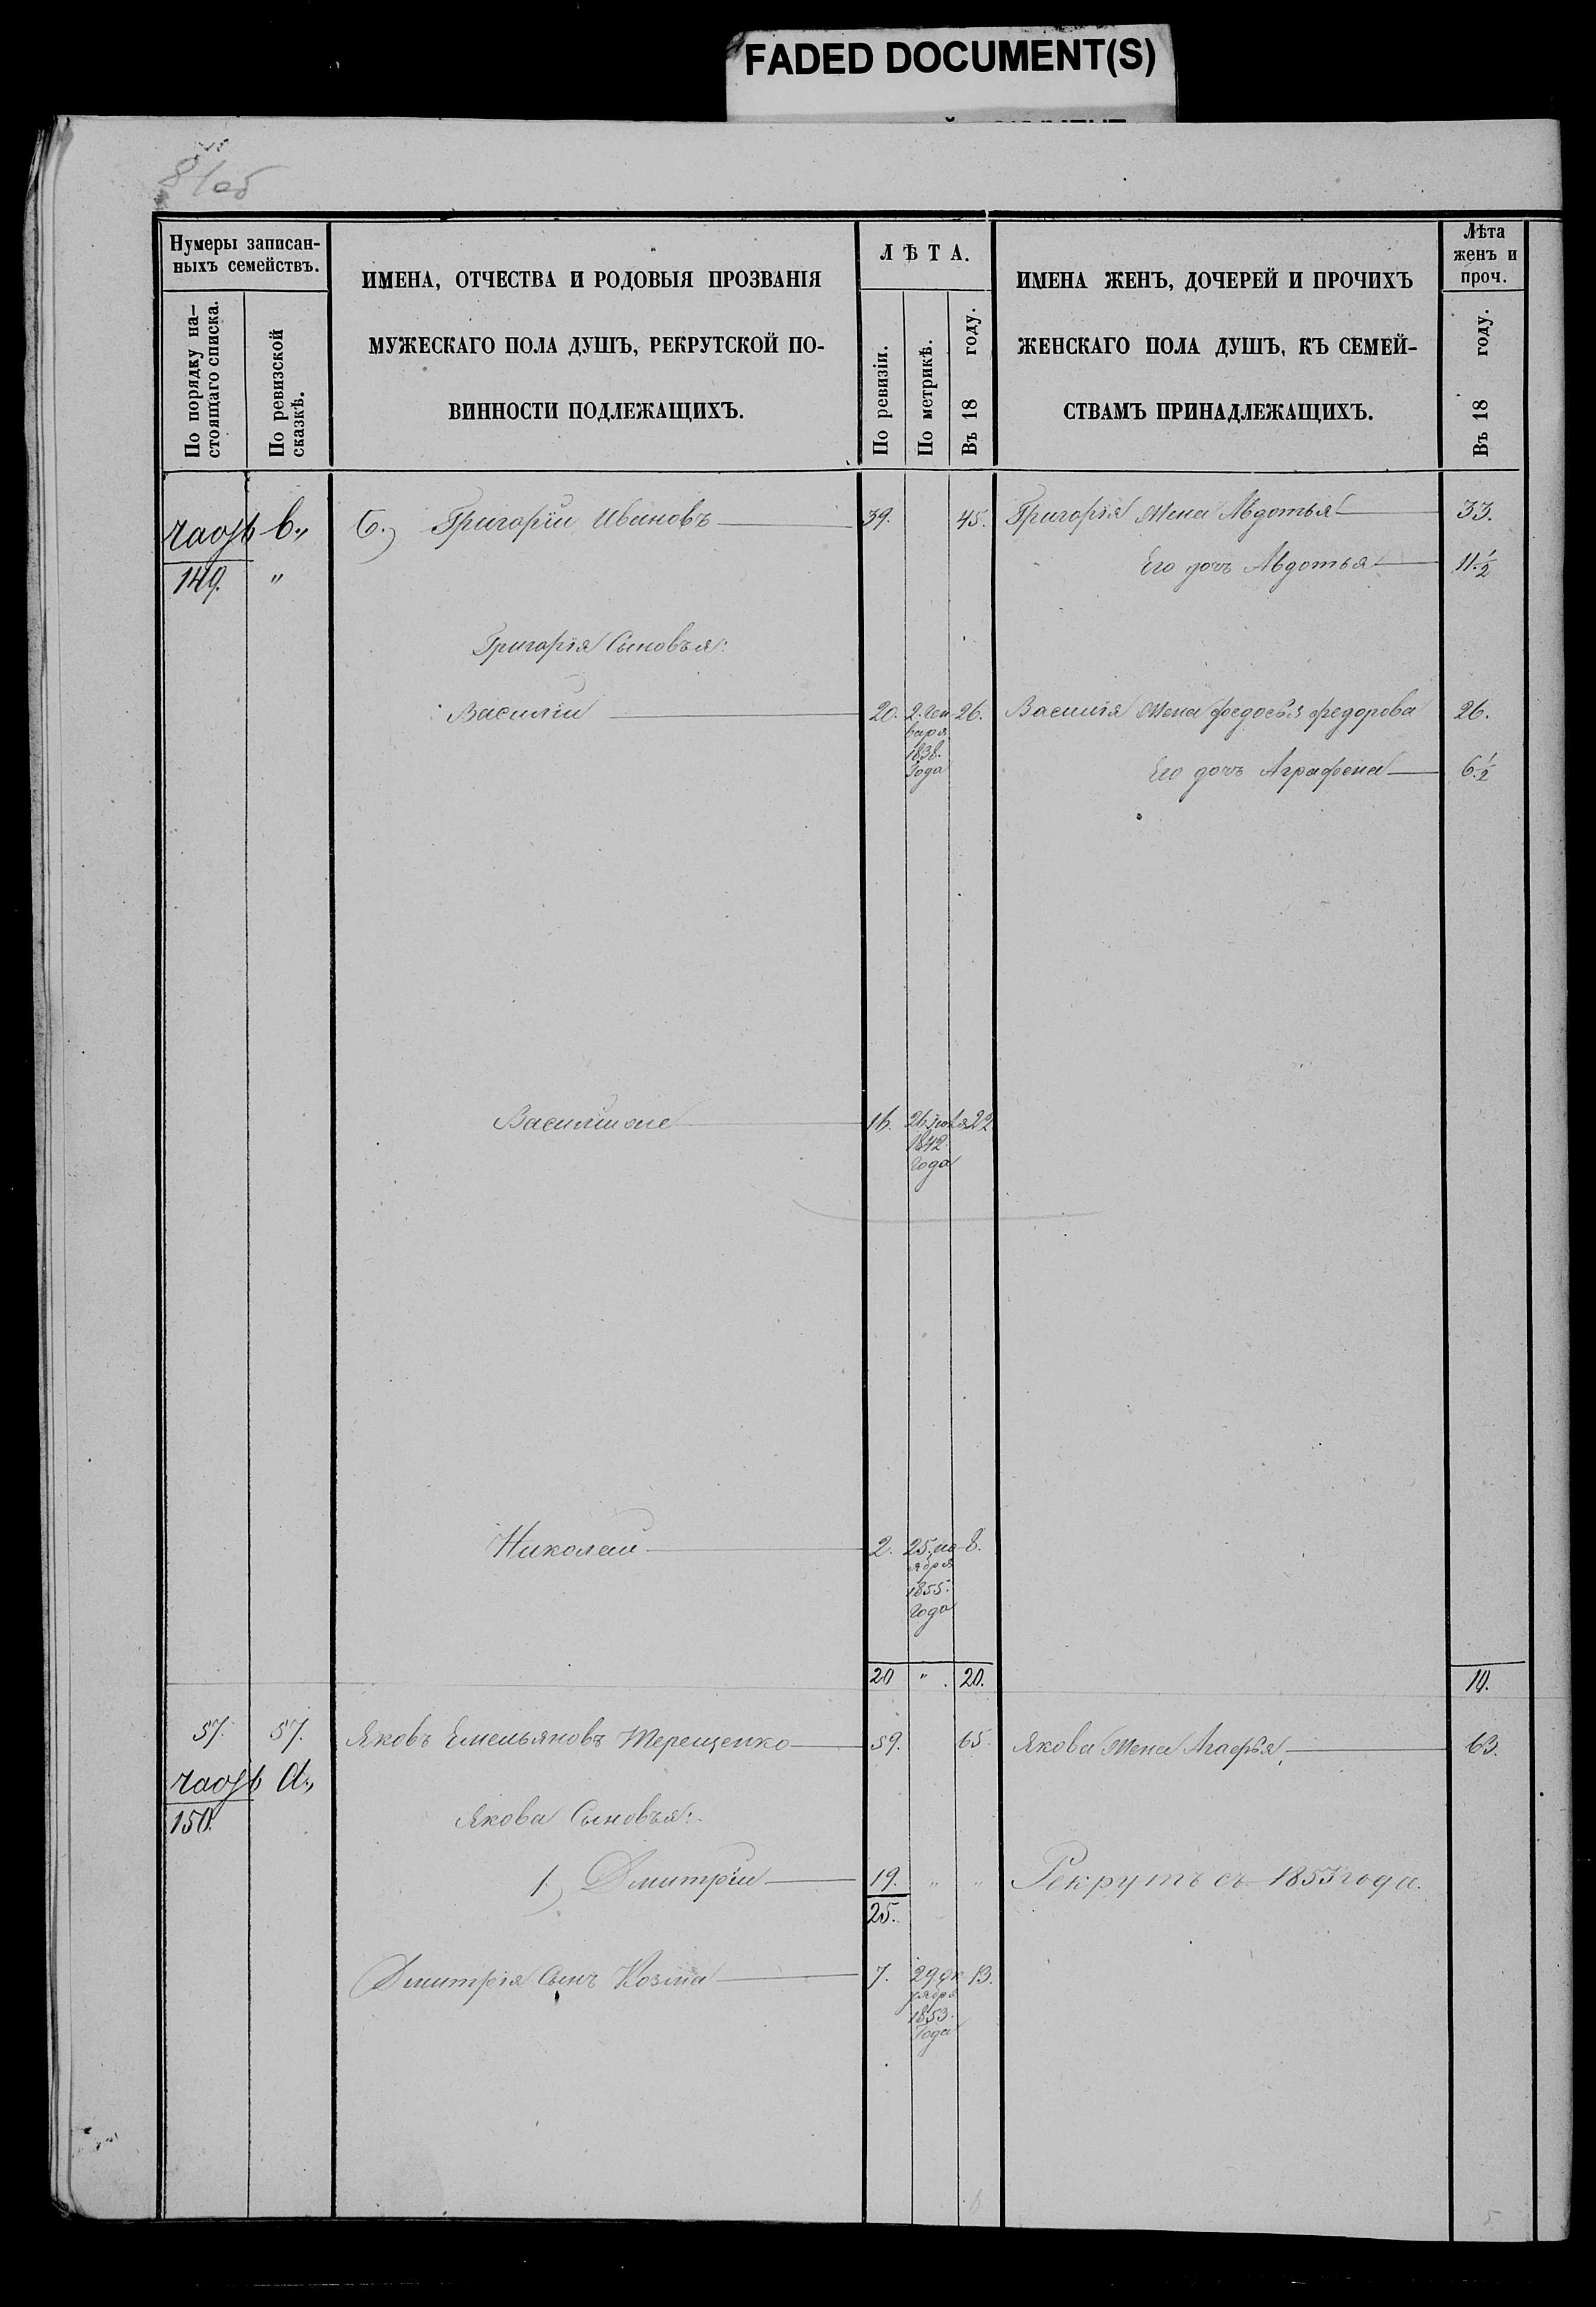 FADED DOCUMENT(S)
81об
Нумеры записан-
ныхъ семействъ.
По порядку на-
стоящаго списка.
По ревизской
сказкѣ.
ИМЕНА, ОТЧЕСТВА И РОДОВЫЯ ПРОЗВАНІЯ
МУЖЕСКАГО ПОЛА ДУШЪ, РЕКРУТСКОЙ ПО-
ВИННОСТИ ПОДЛЕЖАЩИХЪ.
ЛѢТА.
По ревизіи.
По метрикѣ.
Въ 18 году.
ИМЕНА ЖЕНЪ, ДОЧЕРЕЙ И ПРОЧИХЪ
ЖЕНСКАГО ПОЛА ДУШЪ, КЪ СЕМЕЙ-
СТВАМЪ ПРИНАДЛЕЖАЩИХЪ.
Лѣта
женъ и
проч.
Въ 18 году.
часть в., 6.) Григорій Ивановъ 39. 45. Григорія жена Авдотья 33.
149. " Его дочь Авдотья 11 1/2
Григорія Сыновья:
Василій 20. 2. Ген- 26. Василія жена Федосья Федорова 26.
варя
1838.
Года
Его дочь Аграфена 6 1/2
Василій же 16. 26. 22
1842
Года
Николай 2. 25. но- 8.
ября
1855.
Года
20 " 20. 10.
57. 57. Яковъ Емельяновъ Терещенко 59. 65. Якова жена Агафья, 63.
часть а.,
150.
Якова Сыновья:
1.) Дмитрій 19. " " Рекрутъ съ 1853 года.
25.
Дмитрія Сынъ Козма 7. 29. ок- 13.
тября
1853.
Года
6
5